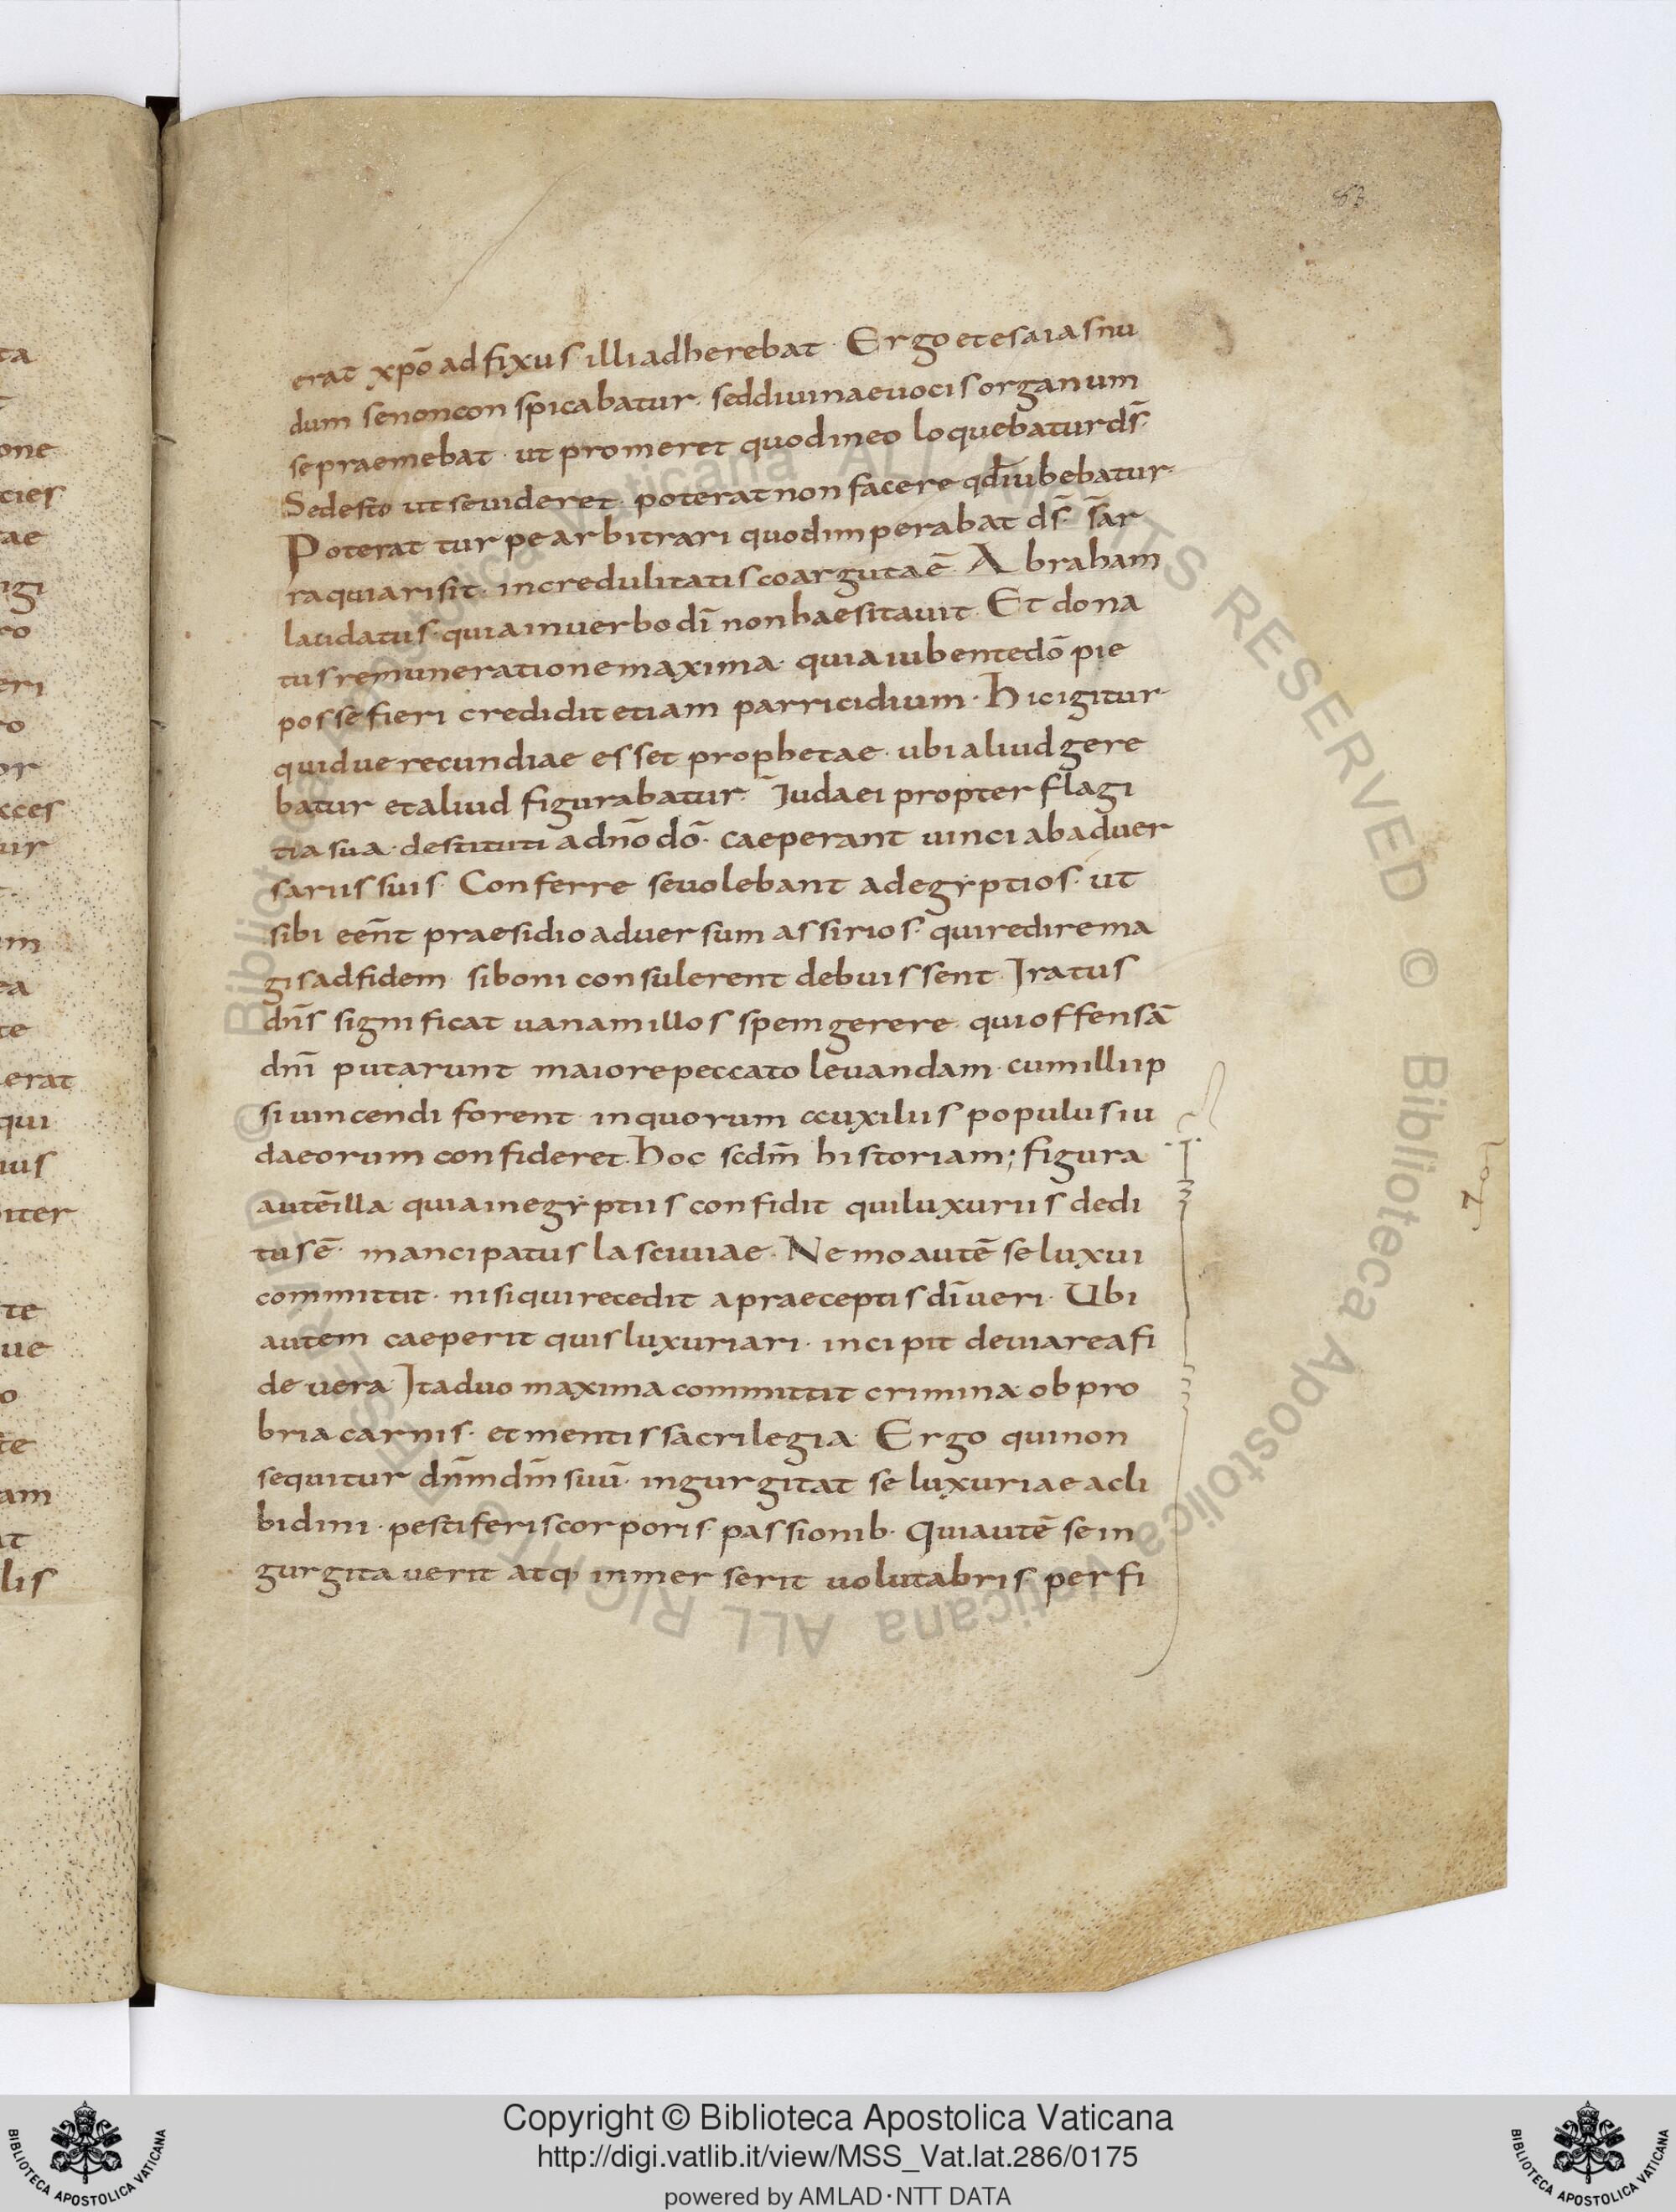 83
erat xpō adfixus illi adherebat · Ergo et esaias nu
dum se non conspicabatur · sed diuinae uocis organum
se praemebat · ut promeret quod in eo loquebatur ds̄·
Sed esto ut se uideret · poterat non facere qd̄ iubebatur·
Poterat turpe arbitrari quod imperabat ds̄· sar
ra quia risit · incredulitatis coarguta ē· Abraham
laudatus · quia in uerbo dī non haesitauit · Et dona
tus remuneratione maxima · quia iubente dō pie
posse fieri credidit etiam parricidium · hic igitur
quid uerecundiae esset prophetae · ubi aliud gere
batur et aliud figurabatur · Iudaei propter flagi
tia sua · destituti a dn̄o dō · caeperant uinci ab aduer
sariis suis · Conferre se uolebant ad egyptios · ut
sibi eēnt praesidio aduersum assirios · qui redire ma
gis ad fidem si boni consulerent debuissent · Iratus
dn̄s significat uanam illos spem gerere · qui offensā
dn̄i putarunt maiore peccato leuandam · cum illi ip
si uincendi forent · in quorum auxiliis populus iu
daeorum confideret · hoc scdm̄ historiam; figura
autē illa · quia in egyptiis confidit qui luxuriis dedi
tus ē· mancipatus lasciuiae · Nemo autē se luxui
committit · nisi qui recedit a praeceptis dī ueri · Ubi
autem caeperit quis luxuriari · incipit deuiare a fi
de uera · Ita duo maxima committit crimina · obpro
bria carnis · et mentis sacrilegia · Ergo qui non
sequitur dn̄m dm̄ suū · ingurgitat se luxuriae ac li
bidini · pestiferis corporis passionib· Qui autē se in
gurgitauerit atq· inmerserit uolutabris · perfi
Copyright © Biblioteca Apostolica Vaticana
http://digi.vatlib.it/view/MSS_Vat.lat.286/0175
powered by AMLAD·NTT DATA